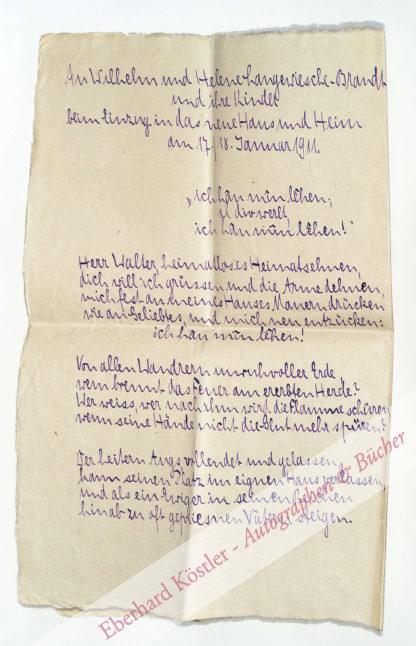 An Wilhelm und Helene Langewiesche-Brandt
und ihre Kinder
beim Einzug in das neue Haus und Heim
am 17/18. Januar 1911.
„ich hân mîn lêhen,
al diu werlt,
ich hân mîn lêhen!"
Herr Walter, heimatloses Heimatsehnen,
dich will ich grüssen und die Arme dehnen,
mich fest an meines Hauses Mauern drücken
wie an Geliebtes, und mich neu entzücken:
ich hân mîn lêhen!
Von allen Wandrern unruhvoller Erde
wem brennt das Feuer am ererbten Herde?
Wer weiss, wer nach ihm wird die Flamme schüren,
wenn seine Hände nicht die Glut mehr spüren?
Der heitern Augs vollendet und gelassen
kann seinen Platz im eignen Haus verlassen
und als ein Ewiger in seinen
hinab zu oft gepriesnen Vätern steigen.
Eberhard Köstler - Autographen & Bücher